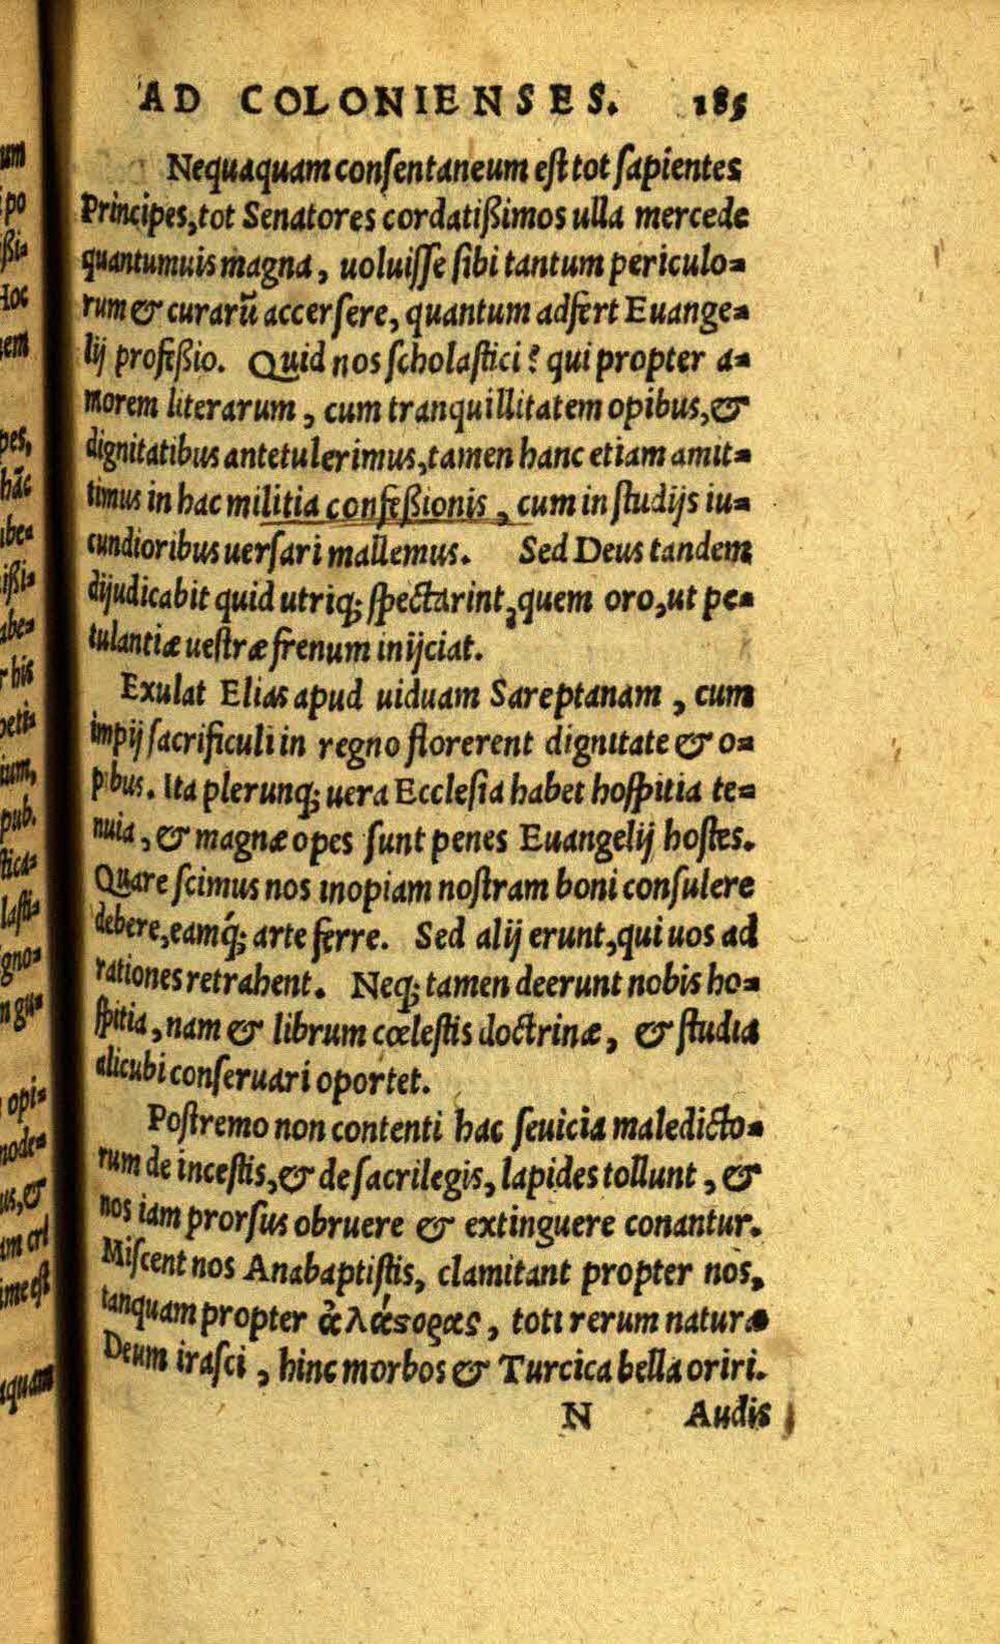 AD COLONIENSES. 185
Nequaquam conſentaneum eſt tot ſapientes
Principes, tot Senatores cordatißimos ulla mercede
quantumuis magna, uoluiſſe ſibi tantum periculo=
rum & curarũ accerſere, quantum adfert Euange=
lij profeßio. Quid nos ſcholaſtici? qui propter a=
morem literarum, cum tranquillitatem opibus, &
dignitatibus antetulerimus, tamen hanc etiam amit=
timus in hac militia confeßionis, cum in ſtudijs iu=
cundioribus uerſari mallemus. Sed Deus tandem
dijudicabit quid utriq; ſpectarint, quem oro, ut pe=
tulantiæ ueſtræ frenum inijciat.
Exulat Elias apud uiduam Sareptanam, cum
impij ſacrificuli in regno florerent dignitate & o=
pibus. Ita plerunq; uera Eccleſia habet hoſpitia te=
nuia, & magnæ opes ſunt penes Euangelij hoſtes.
Quare ſcimus nos inopiam noſtram boni conſulere
debere, eamq́; arte ferre. Sed alij erunt, qui uos ad
rationes retrahent. Neq; tamen deerunt nobis ho=
ſpitia, nam & librum cœleſtis doctrinæ, & ſtudia
alicubi conſeruari oportet.
Poſtremo non contenti hac ſeuicia maledicto=
rum de inceſtis, & de ſacrilegis, lapides tollunt, &
nos iam prorſus obruere & extinguere conantur.
Miſcent nos Anabaptiſtis, clamitant propter nos,
tanquam propter ἀλάστορας, toti rerum naturæ
Deum iraſci, hinc morbos & Turcica bella oriri.
N Audis
um
po
ßi=
tos
em
pes,
hãc
ibe=
ißi=
abe=
r his
peti=
ium,
pub.
ſtica=
laſti=
gno=
n gu=
opi=
node=
us, &
im cri
ime eſt
aquam